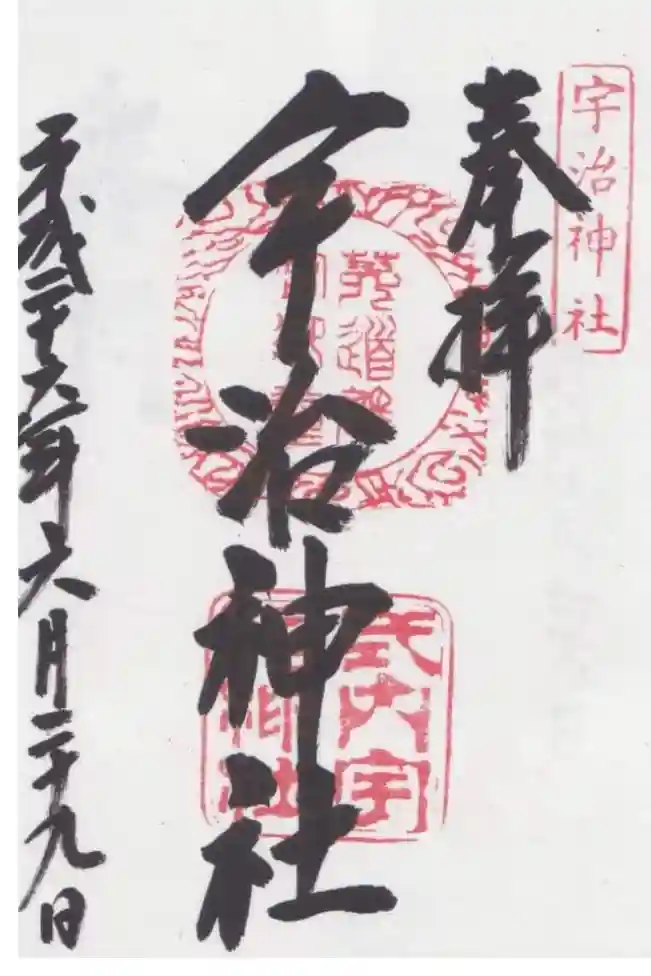 宇治神社
奉拝
宇治神社
平成二十六年六月二十九日
式内宇
治神社